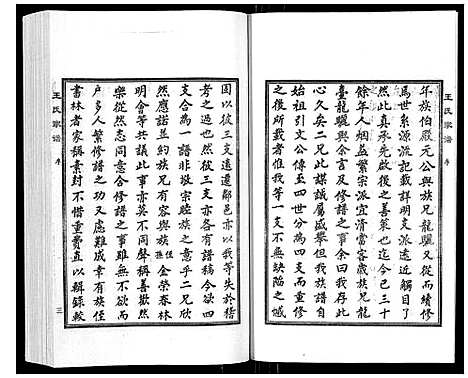 王氏家譜 序
年族伯殿元公與族兄龍驪又從續修
為世系源流記載詳明支派遠近昭
然此真承先啟後之善策也迄今已三十
餘年人烟益繁宗派宜清當客歲族兄龍
臺龍驪與余言及修譜之事余曰我存此
心久矣二兄此謀議屬盛舉但我族譜自
始祖引文公傳至四世分為四支而重修
之後所載者惟我等一支不無缺陷之憾
固以彼三支遠遷鄰邑亦以我等失於稽
考之過也然彼三支亦各有譜稿今欲四
支合為一譜非敬宗睦族之意乎二兄欣
然應諾並約族兄有容姪金榮孫春林
明會等共議此事亦莫不同聲稱善歡然
樂從然志同意合修譜之事雖無不欲而
戶多人繁修譜之力又慮難成幸有族姪
書林者家稱素封不惜重費直以輯錄較
王氏家譜 序 三